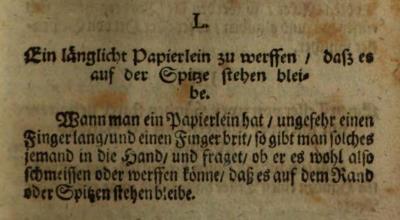 L.
Ein länglicht Papierlein zu werffen / daſz es
auf der Spitze ſtehen blei-
be.
Wann man ein Papierlein hat / ungefehr einen
Finger lang/und einen Finger brit/ ſo gibt man ſolches
jemand in die Hand/ und fraget/ ob er es wohl alſo
ſchmeiſſen oder werffen könne/ daß es auf dem Rand
oder Spitzen ſtehen bleibe.